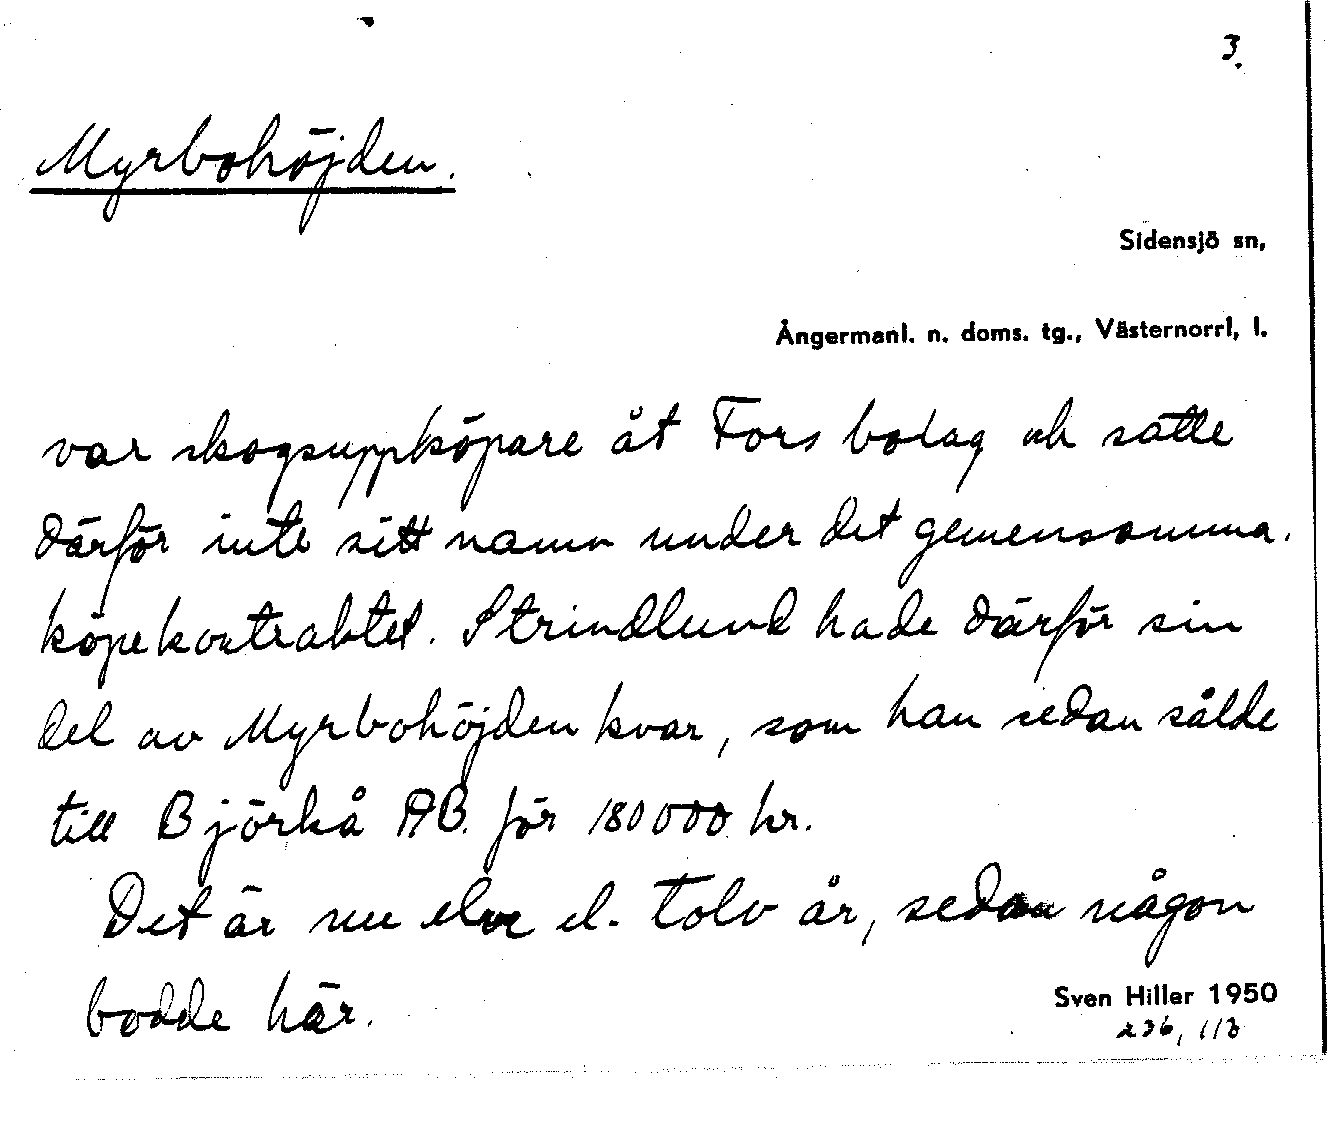 3.
Myrbohöjden.
Sidensjö sn,
Ångermanl. n. doms. tg., Västernorrl, l.
var skogsuppköpare åt Fors bolag och satte
därför inte sitt namn under det gemensamma
köpekontraktet. Strindlund hade därför sin
del av Myrbohöjden kvar, som han sedan sålde
till Björkå AB. för 180000 kr.
Det är nu elve el. tolv år, sedan någon
bodde här.
Sven Hiller 1950
236, 113